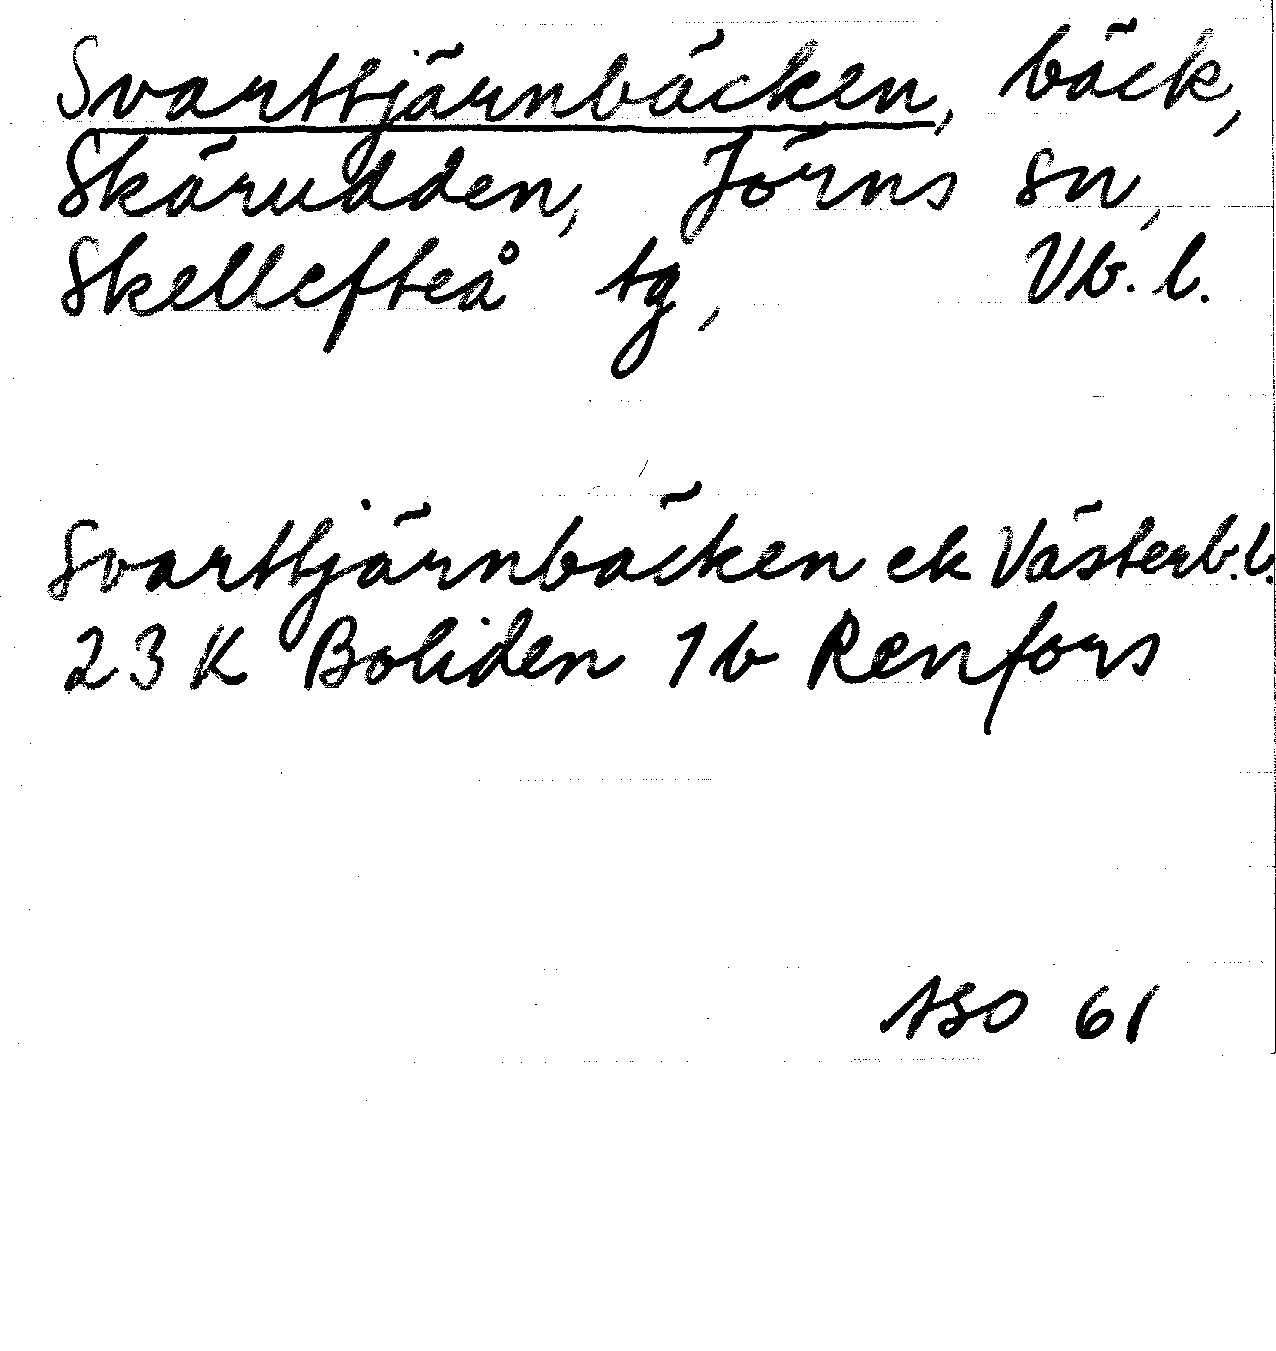 Svarttjärnbäcken, bäck,
Skärudden, Jörns sn,
Skellefteå tg, Vb. l.
Svarttjärnbäcken ek Västerb.l.
23 K Boliden 1 b Renfors
ASO 61